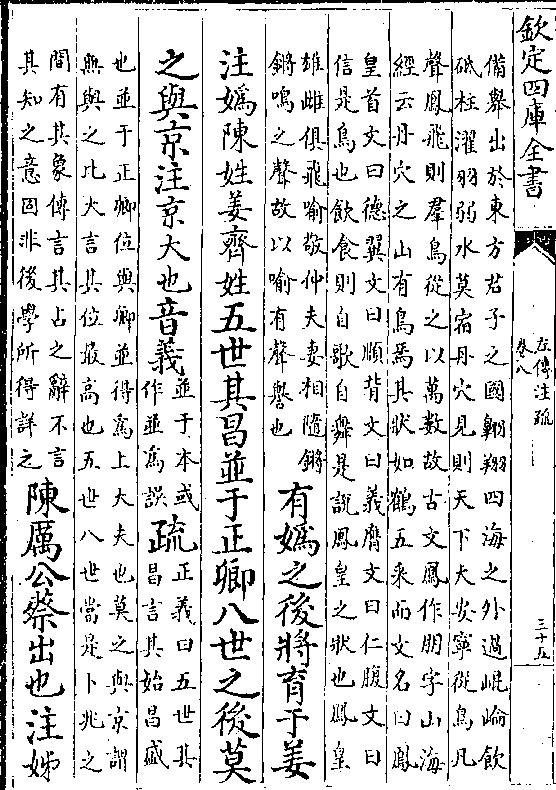 欽定四庫全書
左傳注疏
卷八
三十五
備舉出於東方君子之國翱翔四海之外過崐崘飲
砥柱濯羽弱水莫宿丹穴見則天下大安寧從鳥凡
聲鳳飛則羣鳥從之以萬數故古文鳳作朋字山海
經云丹穴之山有鳥焉其狀如鶴五采而文名曰鳳
皇首文曰德翼文曰順背文曰義膺文曰仁腹文曰
信是鳥也飲食則自歌自舞是說鳳皇之狀也鳳皇
雄雌俱飛喻敬仲夫妻相隨鏘
鏘鳴之聲故以喻有聲譽也
有媯之後將育于姜
注媯陳姓姜齊姓五世其昌並于正卿八世之後莫
之與京注京大也音義
並于本或
作並爲誤
疏
正義曰五世其
昌言其始昌盛
也並于正卿位與卿並得爲上大夫也莫之與京謂
無與之比大言其位最高也五世八世當是卜兆之
間有其象傳言其占之辭不言
其知之意固非後學所得詳之
陳厲公蔡出也注姊